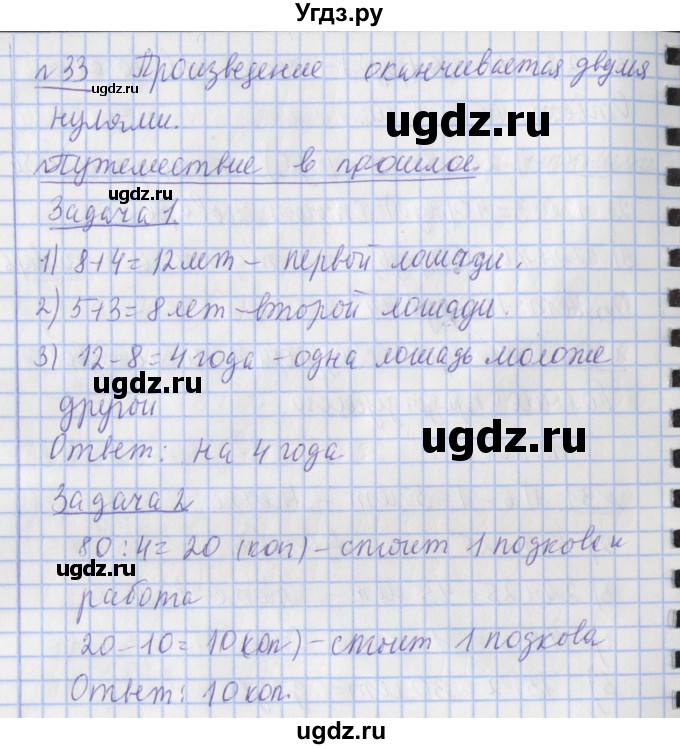 Угдз.ру
№33 Произведение оканчивается двумя
ugdz.ru
ugdz.ru
нулями.
Путешествие в прошлое.
ugdz.ru
Задача 1.
1) 8+4=12лет - первой лошади.
2) 5+3=8лет-второй лошади.
3) 12-8=4года -одна лошадь моложе
ugdz.ru
другой
ugdz.ru
Ответ: на 4года
Задача 2
80:4=20 (коп)-стоит 1подкова и
ugdz.ru
работа
20-10=10коп)-стоит 1 подкова
ugdz.ru
Ответ: 10коп.
ugdz.ru